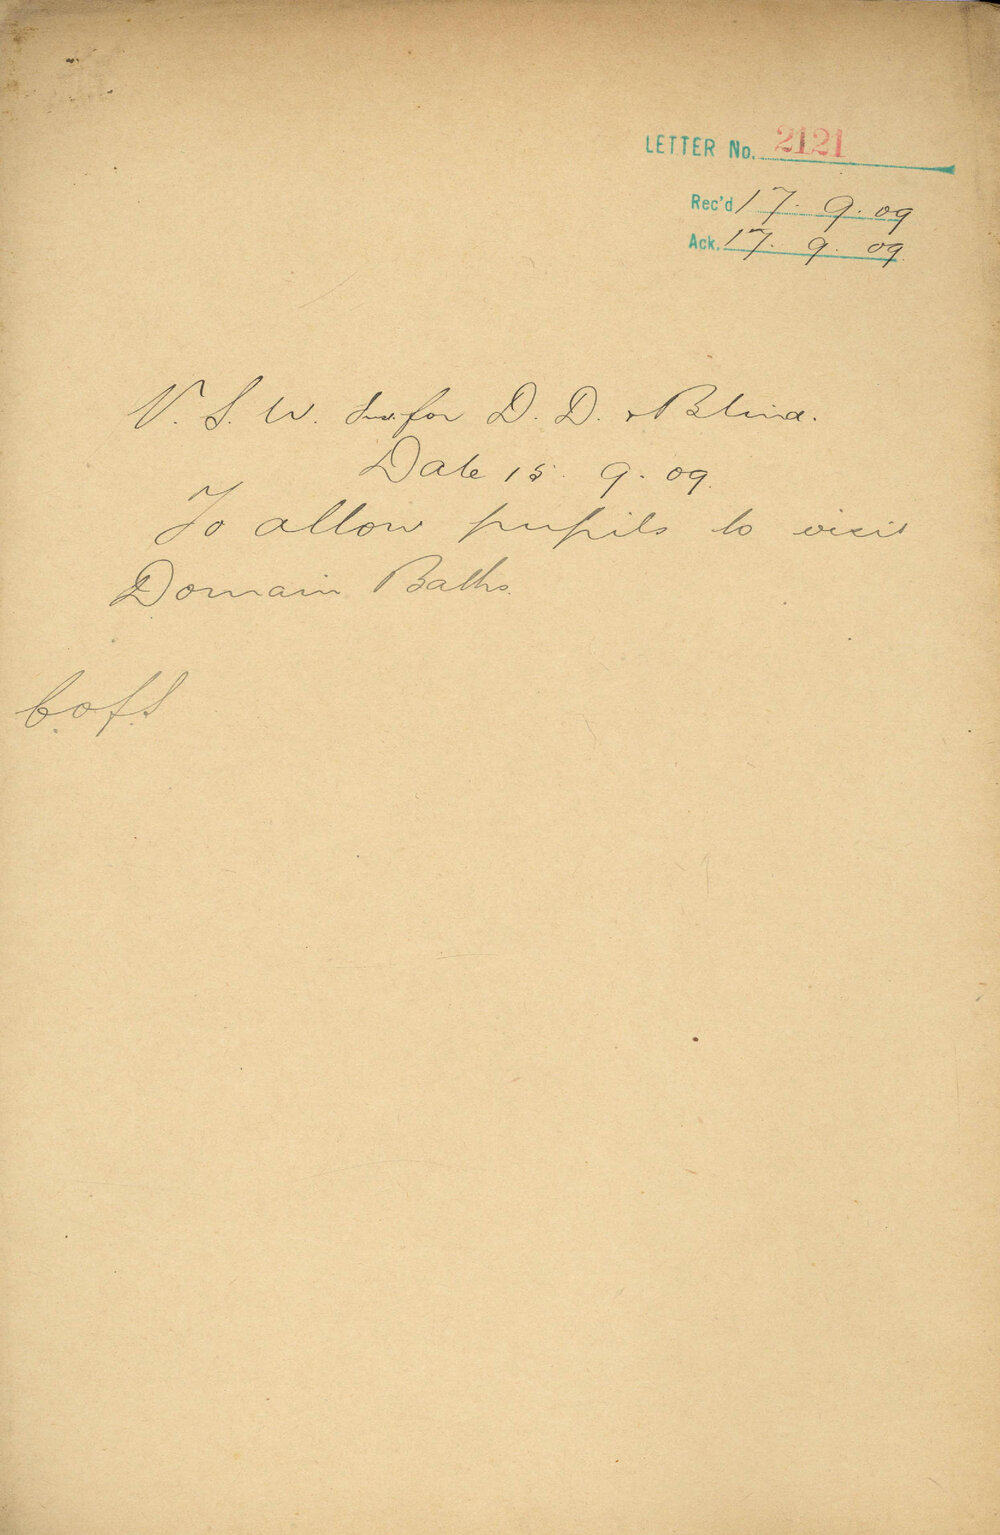 LETTER No. 2121
Rec'd 17. 9. 09
Ack. 17. 9. 09
N. S. W. Ins. for D. D. & Blind.
Date 15. 9. 09.
To allow pupils to visit
Domain Baths.
C. of S.